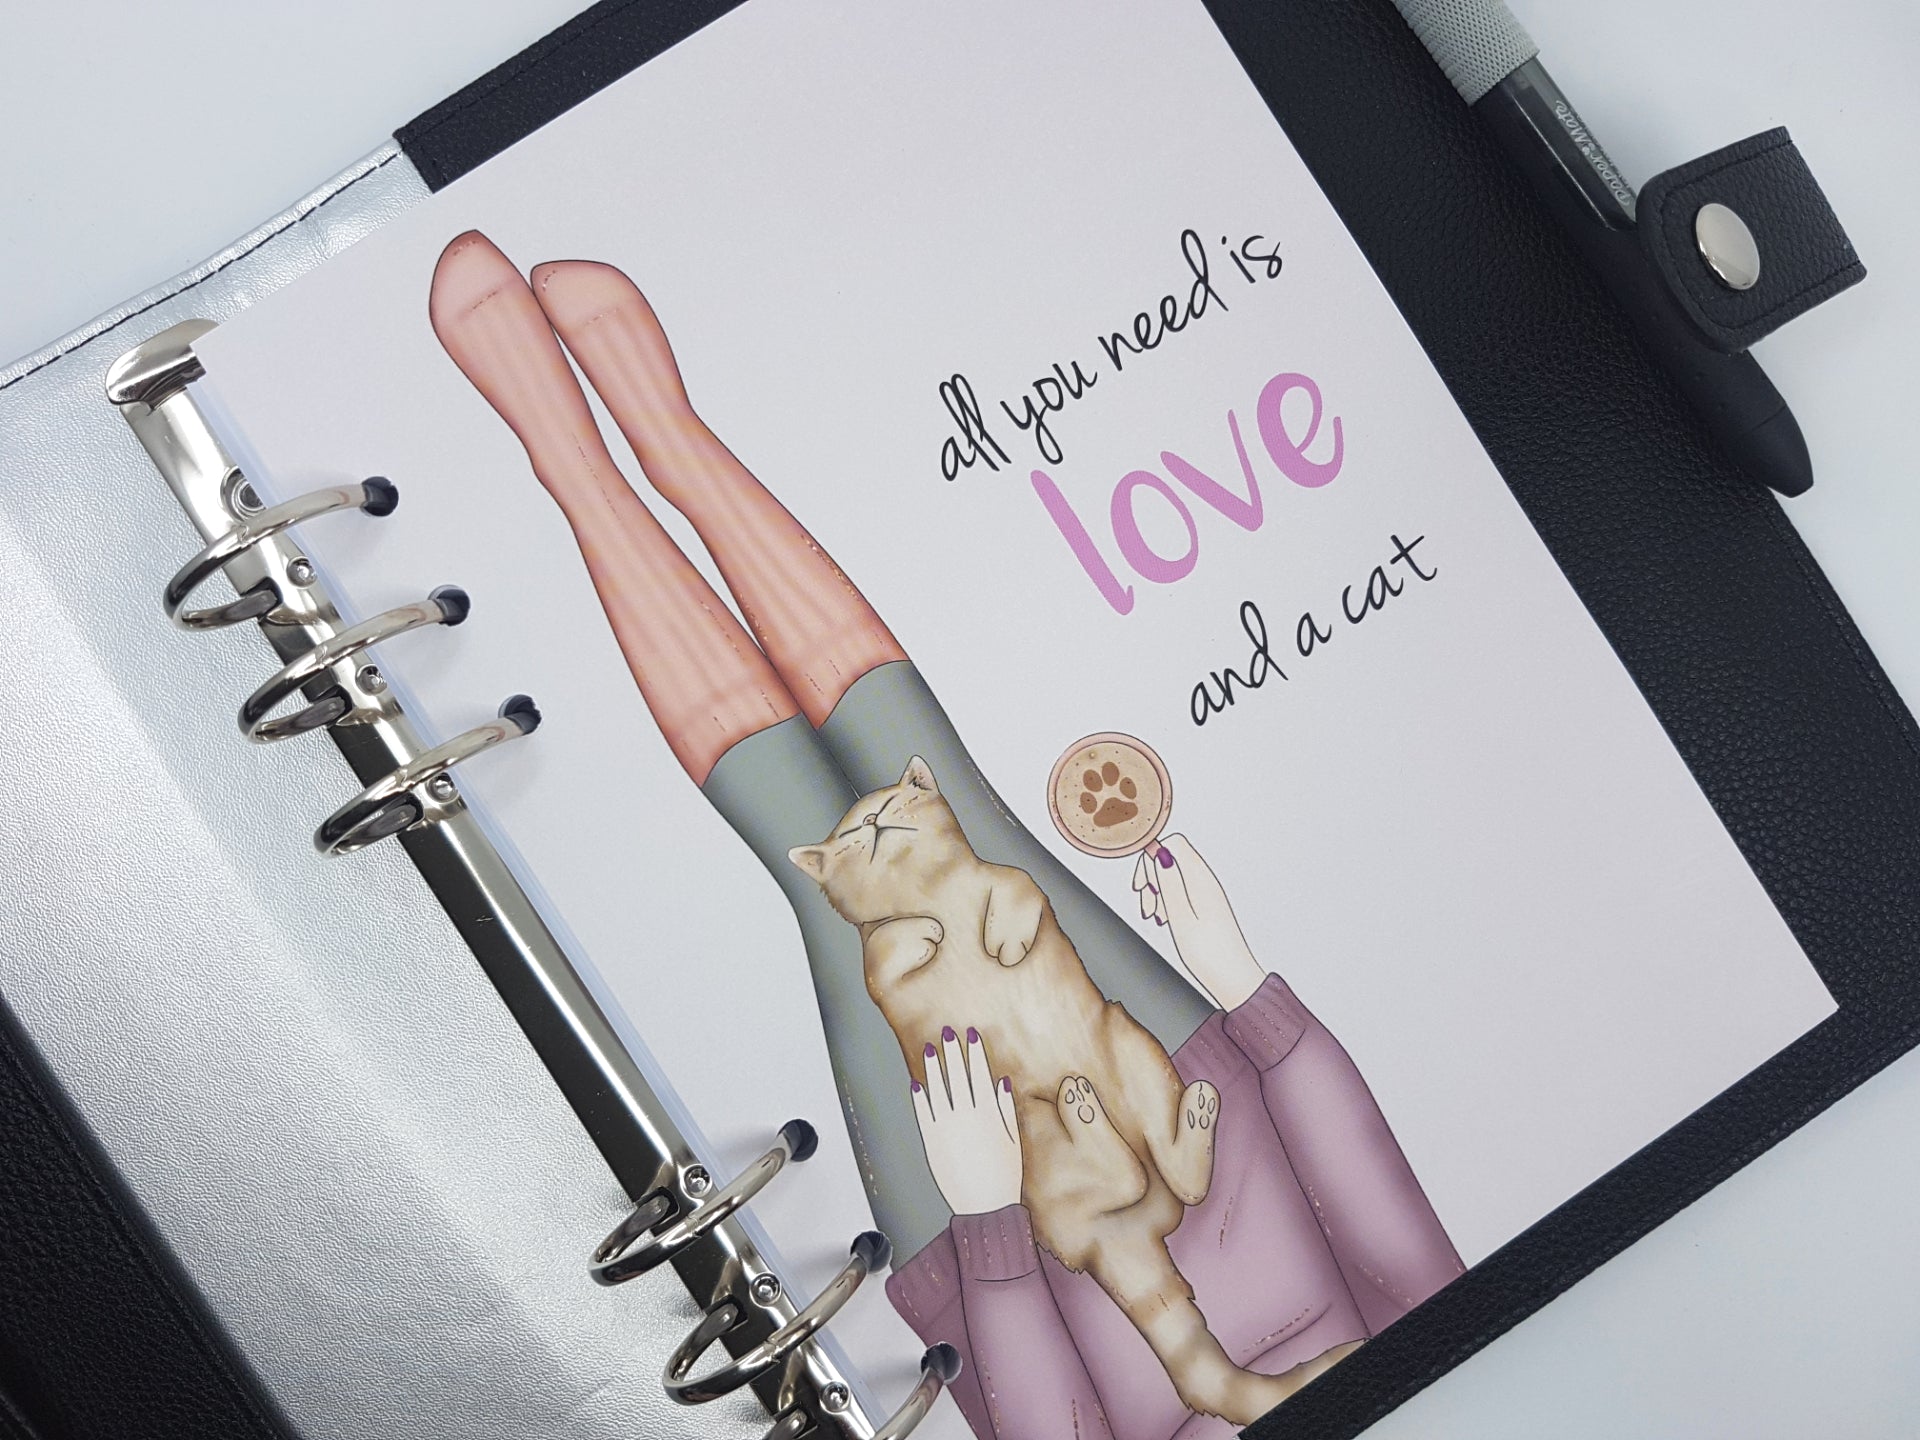 all you need is
love
and a cat
Paper Mate